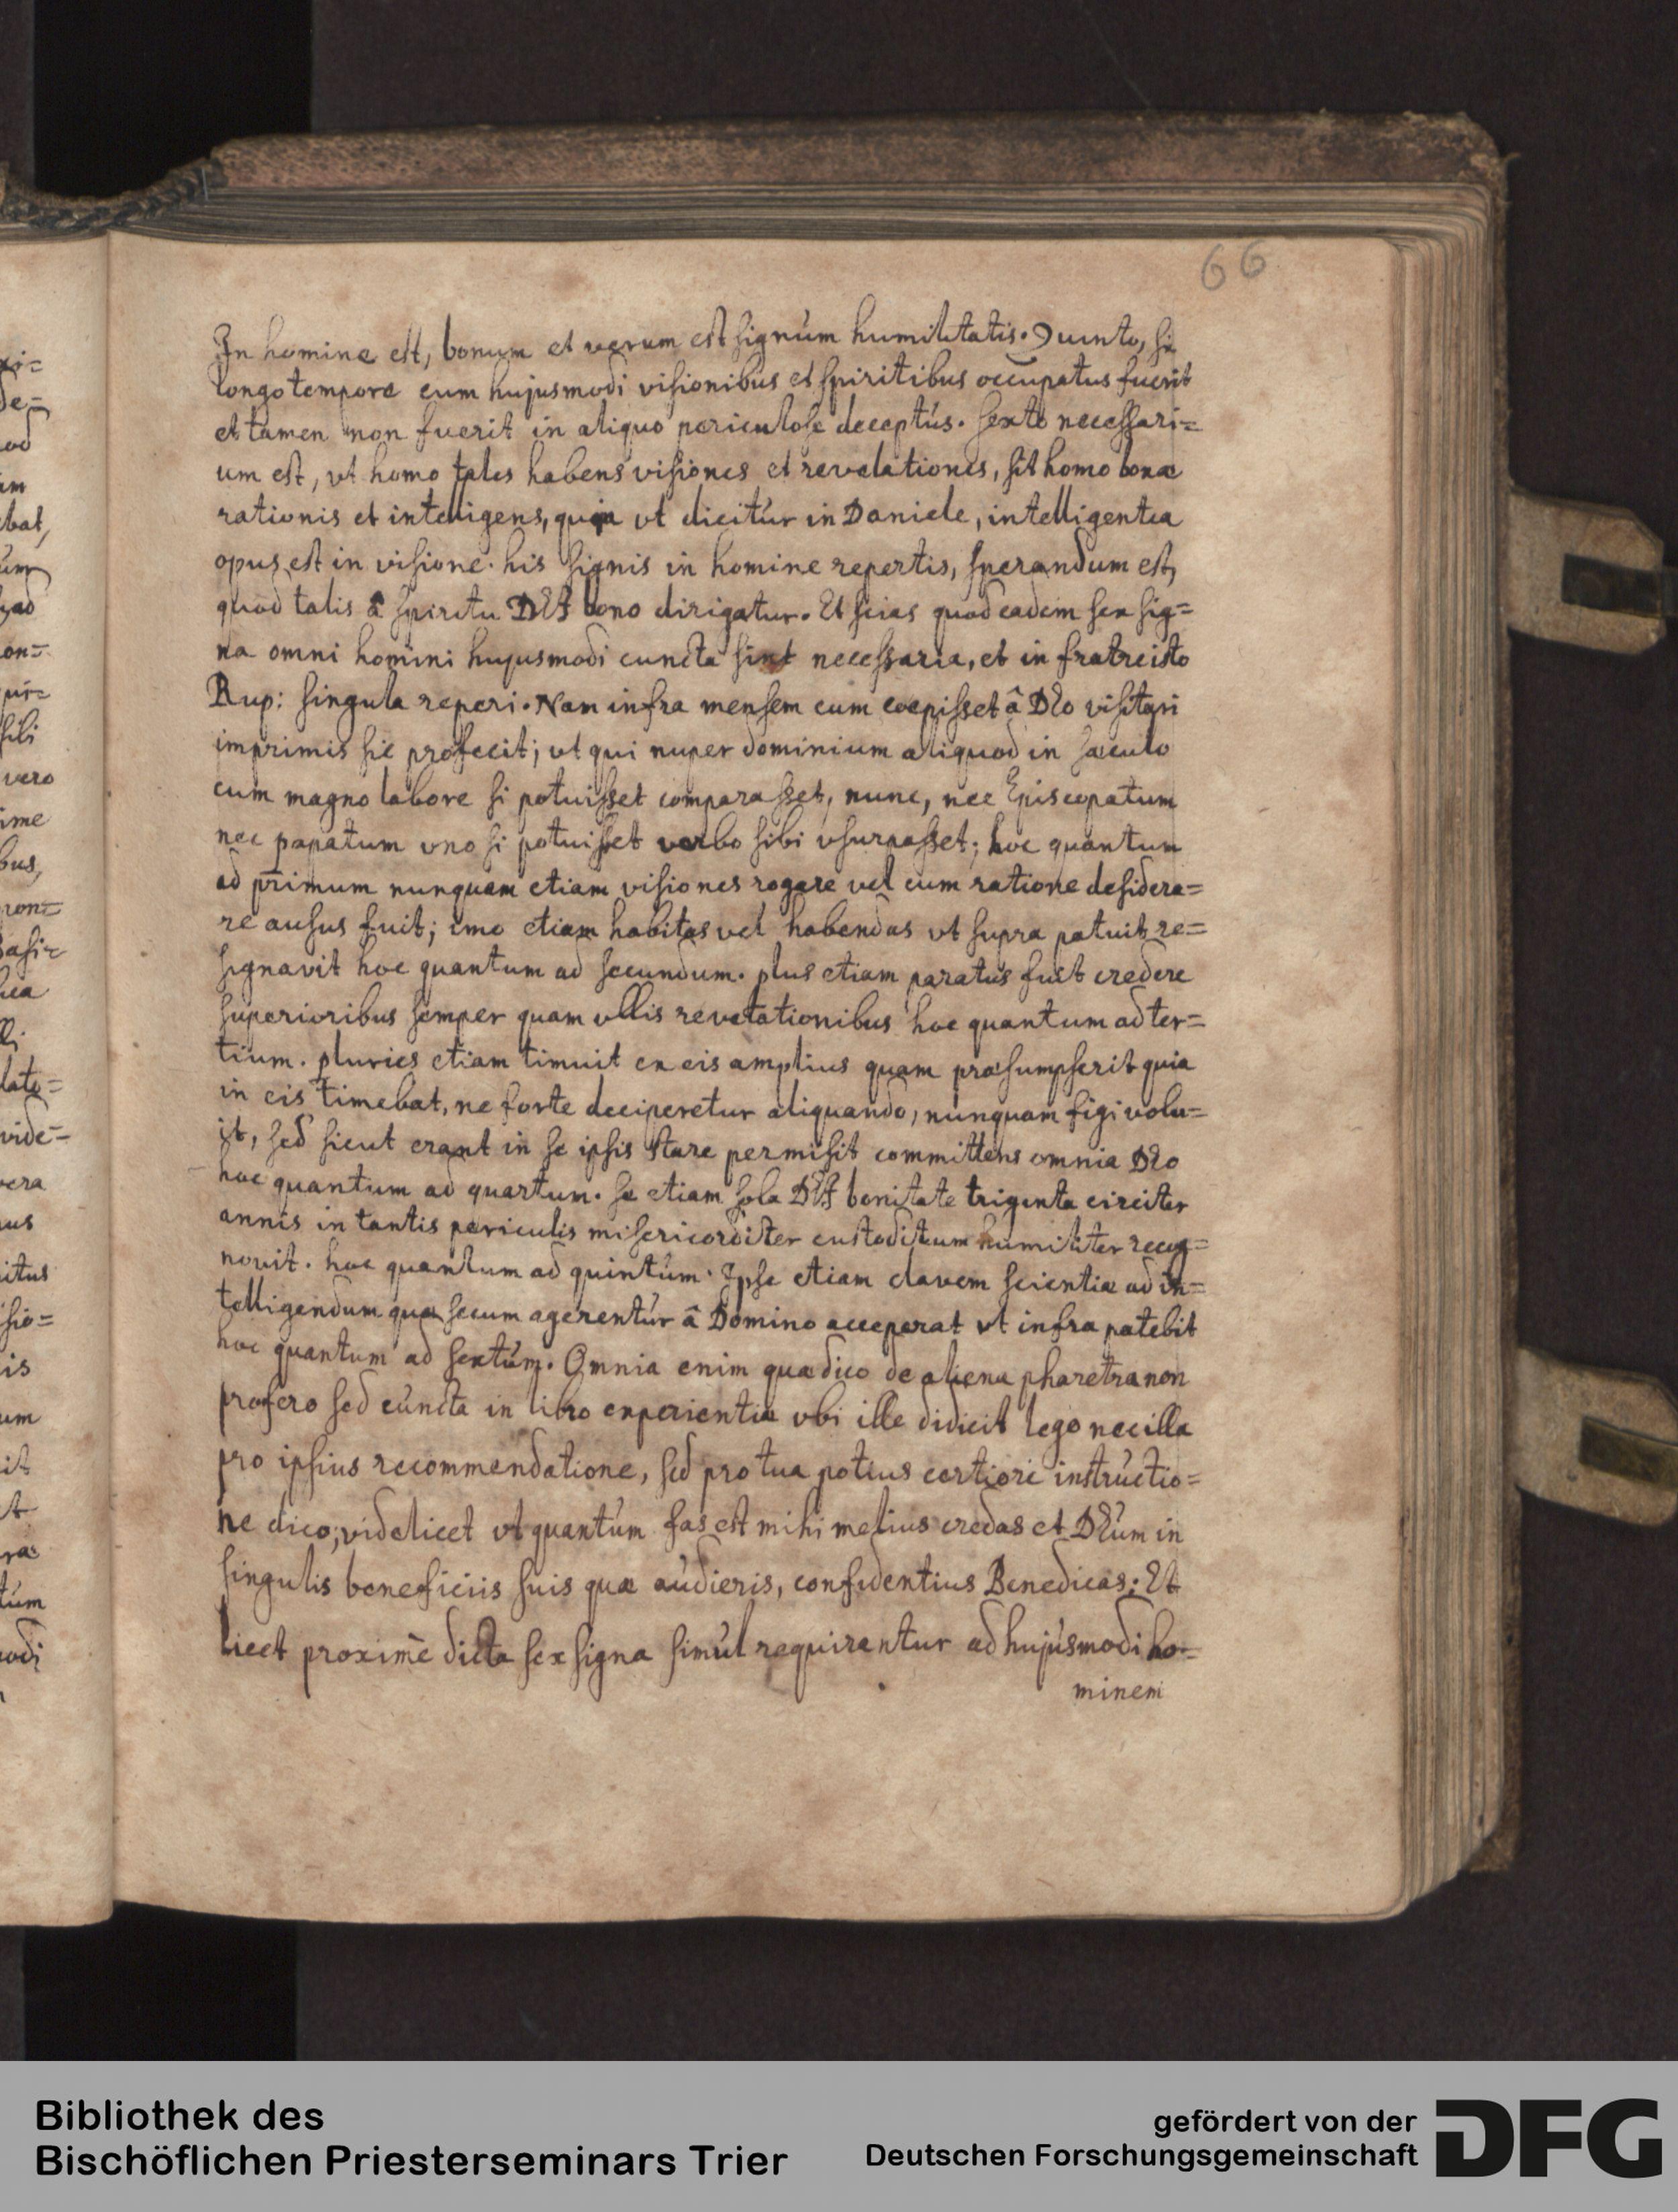 66
In homine est, bonum et verum est signúm humilitatis. Quinto, si
longo tempore cum hujusmodi visionibus et spiritibus occupatus fuerit
et tamen non fuerit in aliquo periculose deceptús. Sexto necessari=
um est, vt homo tales habens visiones et revelationes, sit homo bonæ
rationis et intelligens, quia vt dicitúr in Daniele, intelligentia
opus est in visione. his signis in homine repertis, sperandum est,
quod talis â spiritu DEI bono dirigatur. Et scias quod eadem sex sig=
na omni homini hujusmodi cuncta sint necessaria, et in fratre isto
Rup: singula reperi. Nam infra mensem cum coepisset â DEo visitari
imprimis sic profecit; vt qui nuper dominium aliquod in sæculo
cum magno labore si potuisset comparasset, nunc, nec Episcopatum
nec papatum vno si potuisset verbo sibi vsurpasset; hoc quantum
ad primum nunquam etiam visiones rogare vel cum ratione desidera=
re ausus fuit; imo etiam habitas vel habendas vt supra patuit re=
signavit hoc quantum ad secundum. plus etiam paratus fuit credere
superioribus semper quam vllis revelationibus hoc quantum ad ter=
tium. pluries etiam timuit ex eis amplius quam præsumpserit quia
in eis timebat, ne forte deciperetur aliquando, nunquam figi volu=
it, sed sicut erant in se ipsis stare permisit committens omnia DEo
hoc quantum ad quartum. Se etiam sola DEI bonitate triginta circiter
annis in tantis periculis misericorditer custoditum humiliter recog=
novit. hoc quantum ad quintúm. Ipse etiam clavem scientiæ ad in=
telligendum quæ secum agerentúr â Domino acceperat vt infra patebit
hoc quantum ad sextúm. Omnia enim quæ dico de aliena pharetra non
profero sed cúncta in libro experientiæ vbi ille didicit lego nec illa
pro ipsius recommendatione, sed pro tua potius certiori instrúctio=
ne dico; videlicet vt quantúm fas est mihi melius credas et DEúm in
singulis beneficiis suis quæ aúdieris, confidentius Benedicas: Et
licet proximè dicta sex signa simúl requirantur ad hujúsmodi ho=
minem
xi=
de=
od
im
bat,
úm
ad
on=
sibi
vero
ime
bus,
ron=
lla
late=
vide=
vera
us
itus
sio=
is
um
it
túm
odi
Bibliothek des
Bischöflichen Priesterseminars Trier
gefördert von der
Deutschen Forschungsgemeinschaft
DFG